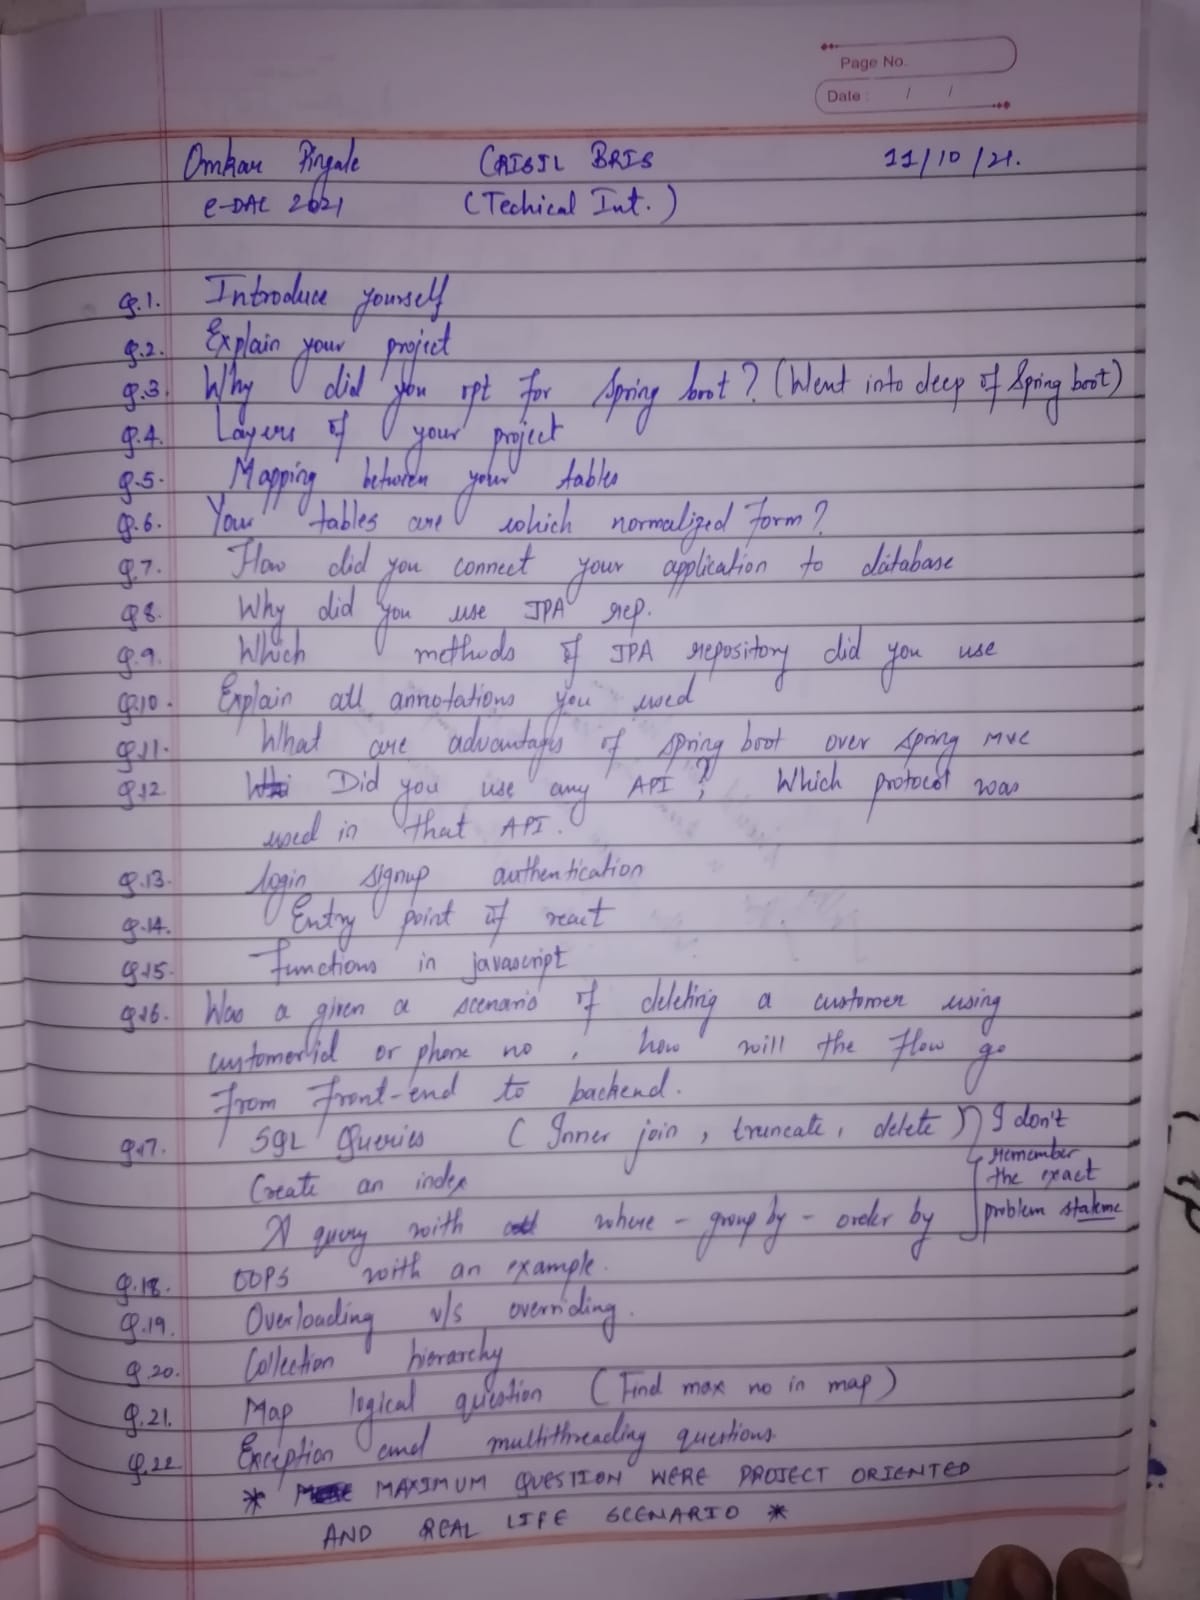 Page No.
Date : / /
Omkar Pingale CRISIL BRIS 11/10/21.
e-DAC 2021 (Techical Int.)
Q.1. Introduce yourself
Q.2. Explain your project
Q.3. Why did you opt for Spring boot? (Went into deep of Spring boot)
Q.4. Layers of your project
Q.5. Mapping between your tables
Q.6. Your tables are which normalized form?
Q.7. How did you connect your application to database
Q8. Why did you use JPA rep.
Q.9. Which methods of JPA repository did you use
Q.10. Explain all annotations you used
Q.11. What are advantages of spring boot over spring mvc
Q.12 Did you use any API? Which protocol was
used in that API.
Q.13. login signup authentication
Q.14. Entry point of react
Q.15. Functions in javascript
Q.16. Was a given a scenario of deleting a customer using
customerid or phone no, how will the flow go
from front-end to backend.
Q.17. SQL Queries (Inner join, truncate, delete) I don't
remember
Create an index the exact
A query with where - group by - order by problem stateme
Q.18. OOPS with an example.
Q.19. Overloading v/s overriding.
Q.20. Collection hierarchy
Q.21. Map logical question (Find max no in map)
Q.22 Exception and multithreading questions.
* MAXIMUM QUESTION WERE PROJECT ORIENTED
AND REAL LIFE SCENARIO *